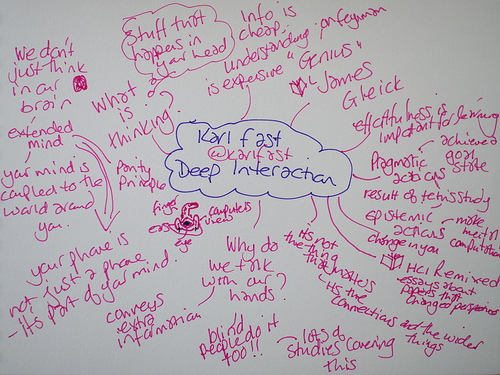 Karl Fast
@karlfast
Deep Interaction
Stuff that
happens in
your head
What
is
thinking?
We don't
just think
in our
brain
extended
mind
your mind is
coupled to the
world around
you.
Parity
Principle
your phone is
not just a phone
- it's part of your mind.
finger
ears
eye
computers
Info is
cheap,
understanding
is expensive
"Genius"
on feynman
James
Gleick
effortfulness is
important for learning
Pragmatic
actions
achieve
goal
state
result of tetris study
epistemic
actions
change in you
make
mental
computation
HCI Remixed
essays about
papers that
changed perspectives
it's not
the thing
that matters
its the
connections and the wider
things
Why do
we talk
with our
hands?
conveys
extra
information
blind
people do it
too!!
lots of
studies covering
this